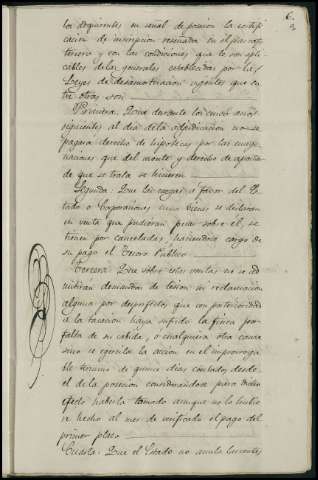 6.
los adquirentes en señal de posesion la certifi
cacion de inscripcion reseñada en el
tercero y con las condiciones que le son apli
cables de las generales establecidas por las
Leyes de desamortizacion vigentes que en
tre otras son
Primera. Que durante los cinco años
siguientes al dia de la adjudicacion no se
pagará derecho de hipotecas por las enage
naciones que del monte y derecho de
de que se trata se hicieren
Segunda. Que las cargas á favor del Es
tado o Corporaciones cuyos bienes se declararon
en venta que pudieran pesar sobre él, se
tienen por canceladas, haciendose cargo de
su pago el Tesoro Publico
Tercera. Que sobre estas ventas no se ad
mitirán demandas de lesion, ni reclamacion
alguna por desperfectos que con posterioridad
á la tasacion haya sufrido la finca por
falta de su cabida, o cualquiera otra causa
sino se egercita la accion en el improrroga
ble termino de quince dias contados desde
el de la posesion considerandose para dicho
efecto haberla tomado aunque no lo hubie
se hecho al mes de verificado el pago del
primer plazo
Cuarta. Que el Estado no anula las ventas